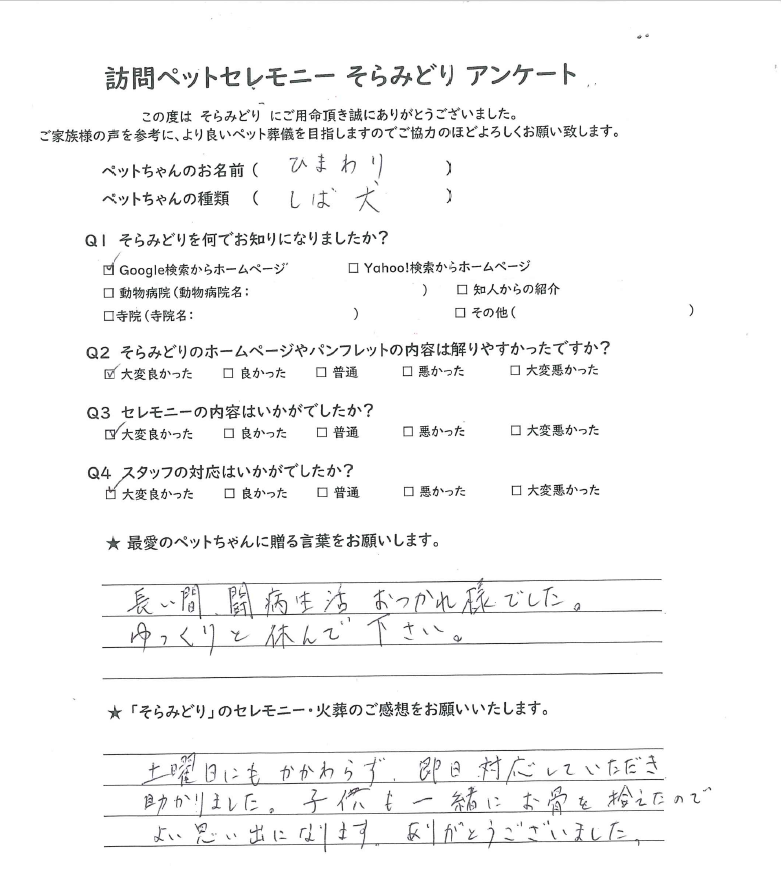 訪問ペットセレモニー そらみどり アンケート
この度は そらみどり にご用命頂き誠にありがとうございました。
ご家族様の声を参考に、より良いペット葬儀を目指しますのでご協力のほどよろしくお願い致します。
ペットちゃんのお名前 ( ひまわり )
ペットちゃんの種類 ( しば犬 )
Q1 そらみどりを何でお知りになりましたか?
☑ Google検索からホームページ □ Yahoo!検索からホームページ
□ 動物病院(動物病院名: ) □ 知人からの紹介
□ 寺院(寺院名: ) □ その他( )
Q2 そらみどりのホームページやパンフレットの内容は解りやすかったですか?
☑ 大変良かった □ 良かった □ 普通 □ 悪かった □ 大変悪かった
Q3 セレモニーの内容はいかがでしたか?
☑ 大変良かった □ 良かった □ 普通 □ 悪かった □ 大変悪かった
Q4 スタッフの対応はいかがでしたか?
☑ 大変良かった □ 良かった □ 普通 □ 悪かった □ 大変悪かった
★ 最愛のペットちゃんに贈る言葉をお願いします。
長い間、闘病生活 おつかれ様でした。
ゆっくりと休んで下さい。
★ 「そらみどり」のセレモニー・火葬のご感想をお願いいたします。
土曜日にもかかわらず、即日対応していただき
助かりました。子供も一緒にお骨を拾えたので
よい思い出になります。ありがとうございました。